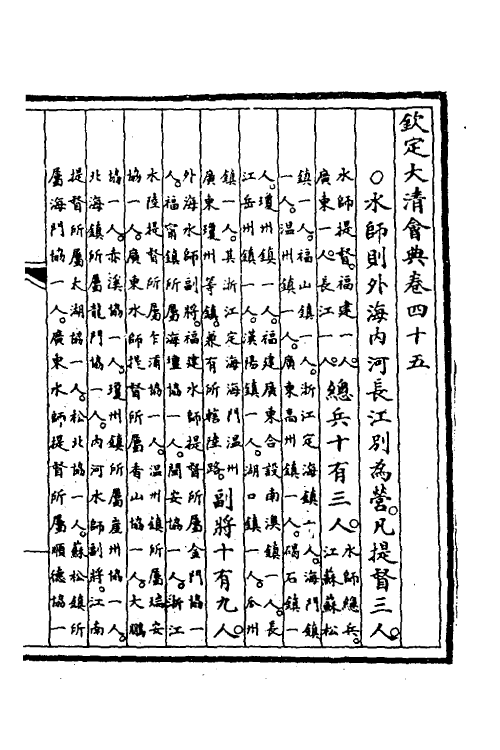 欽定大清會典卷四十五
○水師則外海内河長江別為營。凡提督三人。
水師提督。福建一人。
廣東一人。長江一人。
總兵十有三人。
水師總兵。
江蘇蘇松
鎮一人。福山鎮一人。浙江定海鎮一人。海門鎮
一人。温州鎮一人。廣東高州鎮一人。碣石鎮一
人。瓊州鎮一人。福建廣東合設南澳鎮一人。長
江岳州鎮一人。漢陽鎮一人。湖口鎮一人。瓜州
鎮一人。其浙江定海海門温州
廣東瓊州等鎮。兼有所轄陸路。
副將十有九人。
外海水師副將。福建水師提督所屬金門協一
人。福甯鎮所屬海壇協一人。閩安協一人。浙江
水陸提督所屬乍浦協一人。温州鎮所屬瑞安
協一人。廣東水師提督所屬香山協一人。大鵬
協一人。赤溪協一人。瓊州鎮所屬崖州協一人。
北海鎮所屬龍門協一人。内河水師副將。江南
提督所屬太湖協一人。松北協一人。蘇松鎮所
屬海門協一人。廣東水師提督所屬順德協一